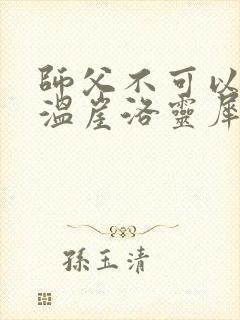 師父不可以
溫崖洛靈犀
孫玉清